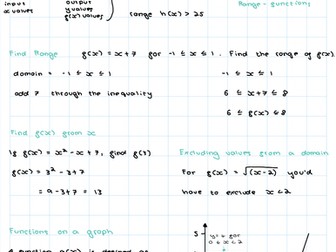 input
x values
output
y values
g(x) values
range h(x) > 25
Range - functions
Find Range
g(x) = x+7 for -1 ≤ x ≤ 1. Find the range of g(x)
domain = -1 ≤ x ≤ 1
add 7 through the inequality
-1 ≤ x ≤ 1
6 ≤ x+7 ≤ 8
6 ≤ g(x) ≤ 8
Find g(x) from x
If g(x) = x² - x + 7, find g(3)
g(x) = 3² - 3 + 7
= 9 - 3 + 7 = 13
Excluding values from a domain
For g(x) = √(x-2) you'd
have to exclude x < 2
Functions on a graph
A function g(x) is defined as
5
y = 4 for
0 ≤ x < 2